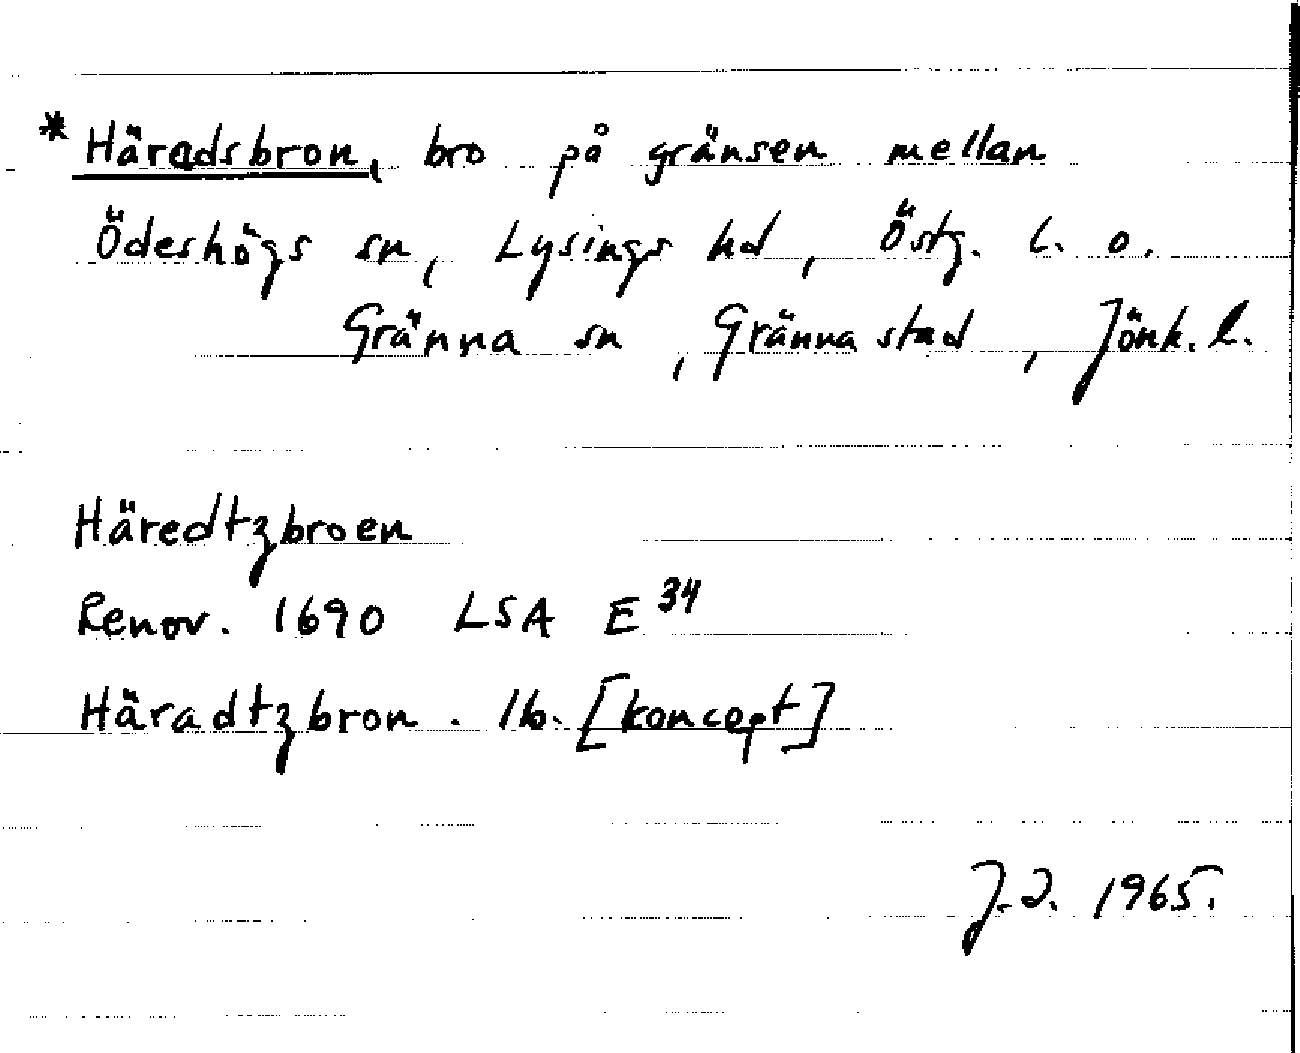 * Häradsbron, bro på gränsen mellan
Ödeshögs sn, Lysings hd, Östg. l. o.
Gränna sn, Gränna stad, Jönk. l.
Häredtzbroen
Renov. 1690 LSA E 34
Häradtzbron. Ib. [koncept]
1965.